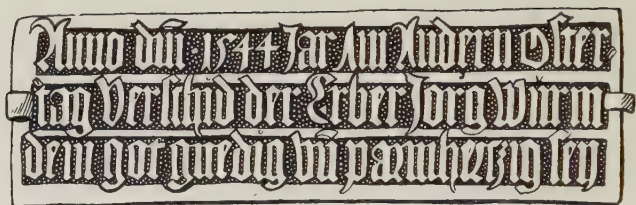 Anno dn̄ · 1544 Jar Am Andern Oster
tag Verschid der Erber Jorg Wurm
dem got gnedig vn̄ parmhertzig sey